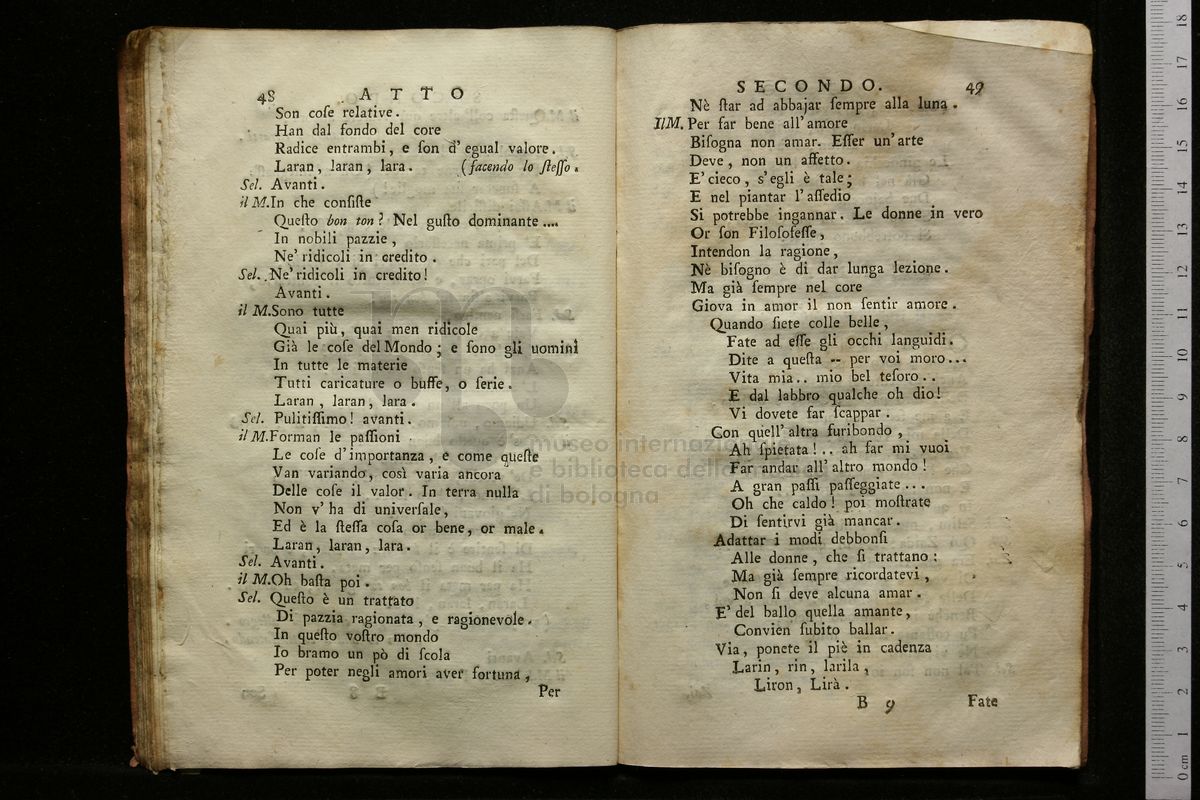 48 ATTO
Son coſe relative.
Han dal fondo del core
Radice entrambi, e ſon d'egual valore.
Laran, laran, lara. (facendo lo ſteſſo.
Sel. Avanti.
il M.In che conſiſte
Queſto bon ton? Nel guſto dominante ....
In nobili pazzie,
Ne' ridicoli in credito.
Sel. Ne' ridicoli in credito!
Avanti.
il M.Sono tutte
Quai più, quai men ridicole
Già le coſe del Mondo; e ſono gli uomini
In tutte le materie
Tutti caricature o buffe, o ſerie.
Laran, laran, lara.
Sel. Pulitiſſimo! avanti.
il M.Forman le paſſioni
Le coſe d'importanza, e come queſte
Van variando, così varia ancora
Delle coſe il valor. In terra nulla
Non v'ha di univerſale,
Ed è la ſteſſa coſa or bene, or male.
Laran, laran, lara.
Sel. Avanti.
il M.Oh baſta poi.
Sel. Queſto è un trattato
Di pazzia ragionata, e ragionevole.
In queſto voſtro mondo
Io bramo un pò di ſcola
Per poter negli amori aver fortuna,
Per
SECONDO. 49
Nè ſtar ad abbajar ſempre alla luna.
Il M. Per far bene all'amore
Biſogna non amar. Eſſer un'arte
Deve, non un affetto.
E' cieco, s'egli è tale;
E nel piantar l'aſſedio
Si potrebbe ingannar. Le donne in vero
Or ſon Filoſofeſſe,
Intendon la ragione,
Nè biſogno è di dar lunga lezione.
Ma già ſempre nel core
Giova in amor il non ſentir amore.
Quando ſiete colle belle,
Fate ad eſſe gli occhi languidi.
Dite a queſta -- per voi moro...
Vita mia.. mio bel teſoro..
E dal labbro qualche oh dio!
Vi dovete far ſcappar.
Con quell'altra furibondo,
Ah ſpietata!.. ah far mi vuoi
Far andar all'altro mondo!
A gran paſſi paſſeggiate...
Oh che caldo! poi moſtrate
Di ſentirvi già mancar.
Adattar i modi debbonſi
Alle donne, che ſi trattano:
Ma già ſempre ricordatevi,
Non ſi deve alcuna amar.
E' del ballo quella amante,
Convien ſubito ballar.
Via, ponete il piè in cadenza
Larin, rin, larila,
Liron, Lirà.
B 9 Fate
museo internazionale
e biblioteca della
di bologna
0 cm 1 2 3 4 5 6 7 8 9 10 11 12 13 14 15 16 17 18